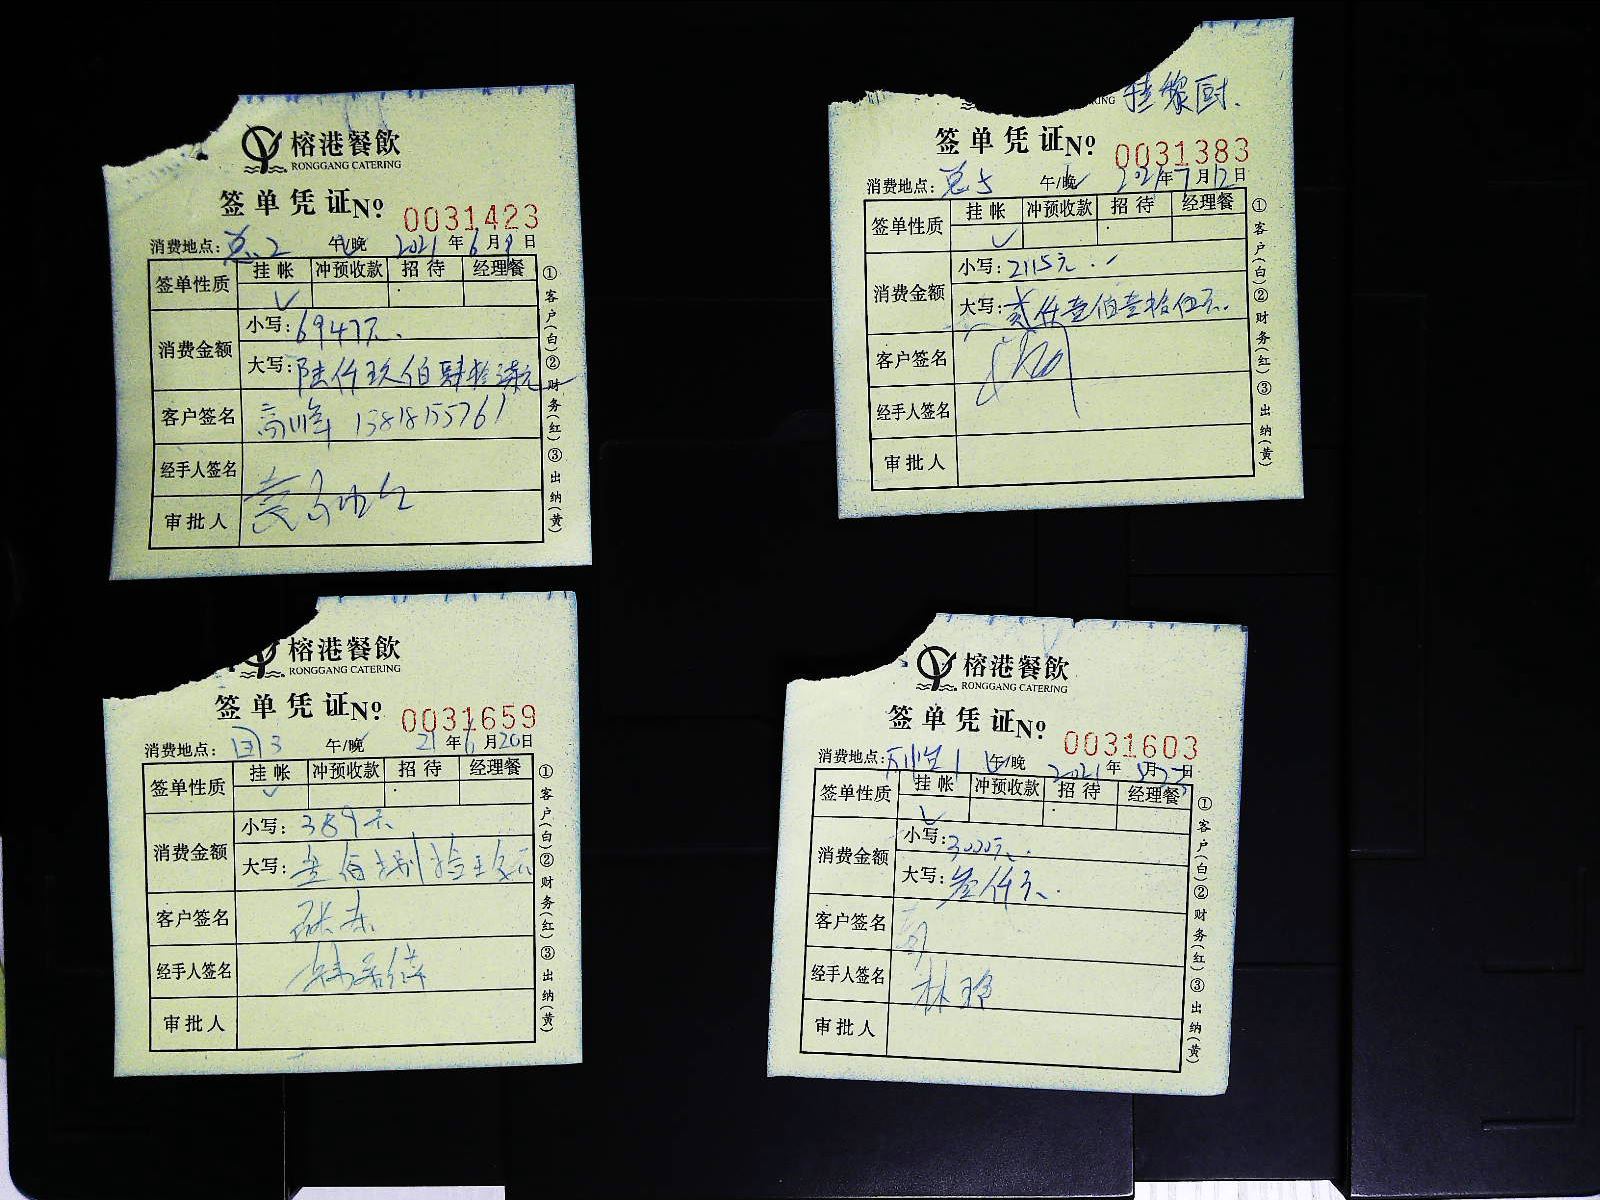 榕港餐飲
RONGGANG CATERING
签单凭证№ 0031423
消费地点: 总2 午/晚 2021年6月9日
签单性质 挂帐 冲预收款 招待 经理餐
✓
消费金额 小写: 6947元.
大写: 陆仟玖佰肆拾柒元
客户签名 高峰 13818155761
经手人签名
审批人
①客户(白)②财务(红)③出纳(黄)
挂黎厨.
签单凭证№ 0031383
消费地点: 总5 午/晚 2021年7月12日
签单性质 挂帐 冲预收款 招待 经理餐
✓
消费金额 小写: 2115元.
大写: 贰仟壹佰壹拾伍元.
客户签名
经手人签名
审批人
①客户(白)②财务(红)③出纳(黄)
榕港餐飲
RONGGANG CATERING
签单凭证№ 0031659
消费地点: 3 午/晚 21年6月20日
签单性质 挂帐 冲预收款 招待 经理餐
✓
消费金额 小写: 389元
大写:
客户签名
经手人签名
审批人
①客户(白)②财务(红)③出纳(黄)
榕港餐飲
RONGGANG CATERING
签单凭证№ 0031603
消费地点: 1 午/晚 2021年5月日
签单性质 挂帐 冲预收款 招待 经理餐
✓
消费金额 小写: 3000元.
大写: 叁仟元.
客户签名
经手人签名 林
审批人
①客户(白)②财务(红)③出纳(黄)